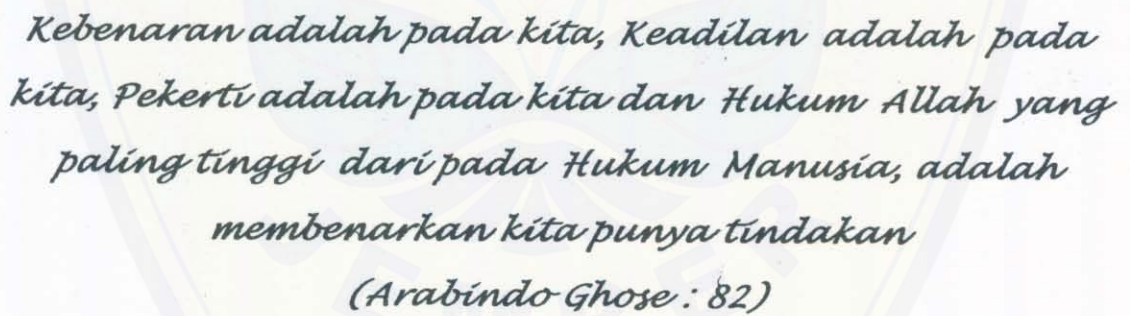 Kebenaran adalah pada kita, Keadilan adalah pada
kita, Pekerti adalah pada kita dan Hukum Allah yang
paling tinggi dari pada Hukum Manusia, adalah
membenarkan kita punya tindakan
(Arabindo Ghose : 82)